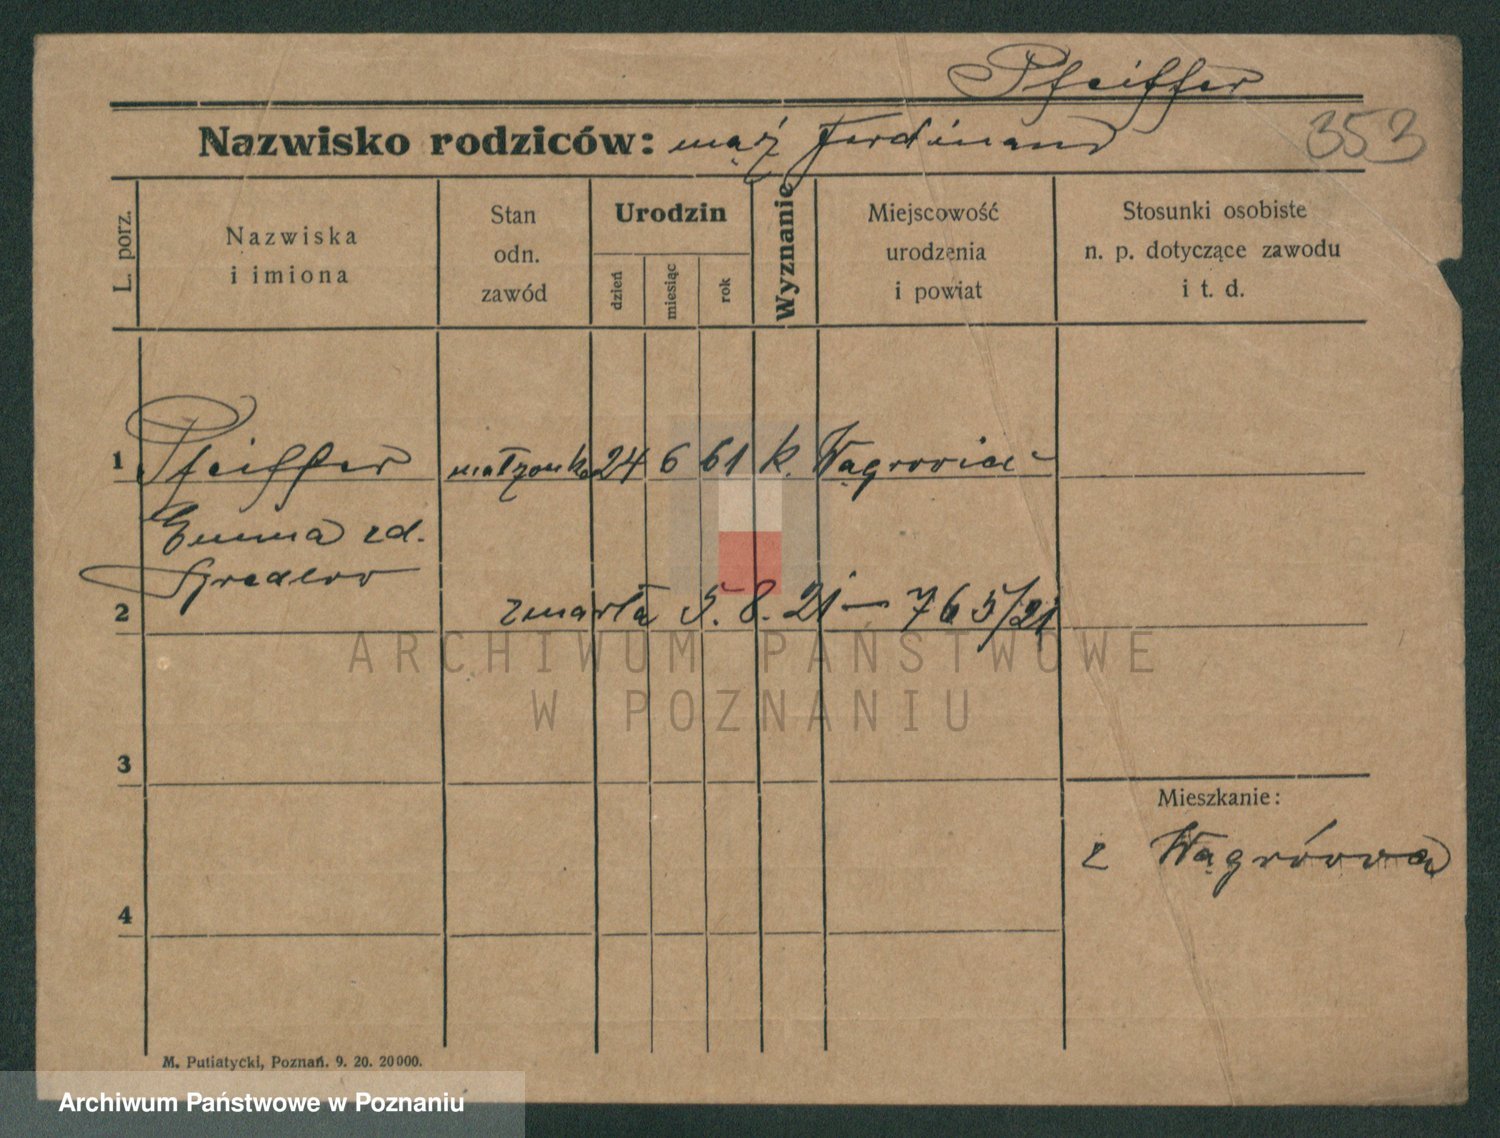 Pfeiffer
Nazwisko rodziców: mąż Ferdinand 353
L. porz.
Nazwiska
i imiona
Stan
odn.
zawód
Urodzin
dzień
miesiąc
rok
Wyznanie
Miejscowość
urodzenia
i powiat
Stosunki osobiste
n. p. dotyczące zawodu
i t. d.
1 Pfeiffer małżonka 24 6 61 k.
Emma zd.
2 zmarła 5. 8. 21 — 765/21
ARCHIWUM PAŃSTWOWE
W POZNANIU
3
Mieszkanie:
z Wągrówca
4
M. Putiatycki, Poznań. 9. 20. 20000.
Archiwum Państwowe w Poznaniu